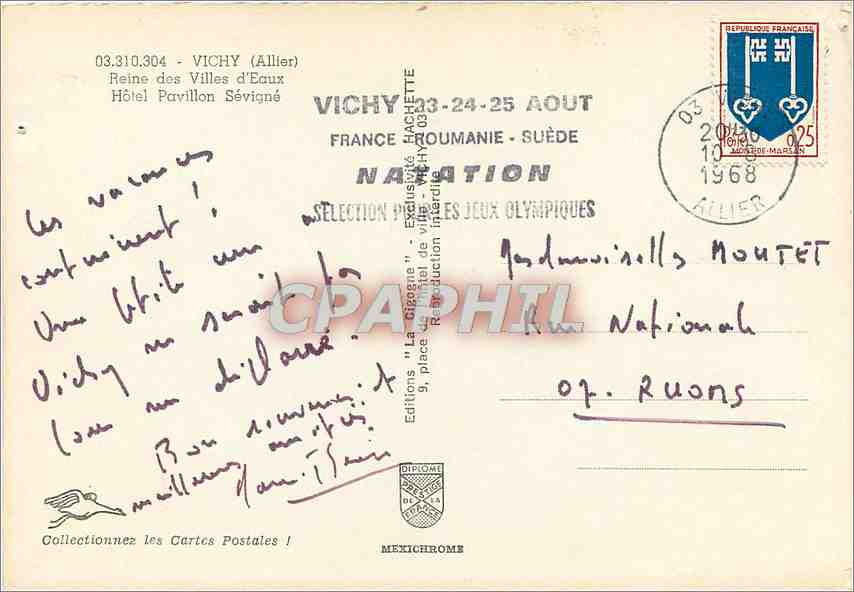 03.310.304 - VICHY (Allier)
Reine des Villes d'Eaux
Hôtel Pavillon Sévigné
VICHY 23-24-25 AOUT
FRANCE - ROUMANIE - SUÈDE
NATATION
SÉLECTION POUR LES JEUX OLYMPIQUES
REPUBLIQUE FRANÇAISE
0,25
MONT-DE-MARSAN
03 VICHY
10-8
1968
ALLIER
Les vacances
continuent !
Une petite
Vichy ne serait pas
Bon souvenir et
meilleures amitiés.
Editions "La Cigogne" - Exclusivité HACHETTE
9, place de l'hôtel de ville - VICHY-03
Reproduction interdite
CPAPHIL
Mesdemoiselles MOUTET
Rue Nationale
07. RUOMS
DIPLOME
PRESTIGE
DE LA
FRANCE
MEXICHROME
Collectionnez les Cartes Postales !